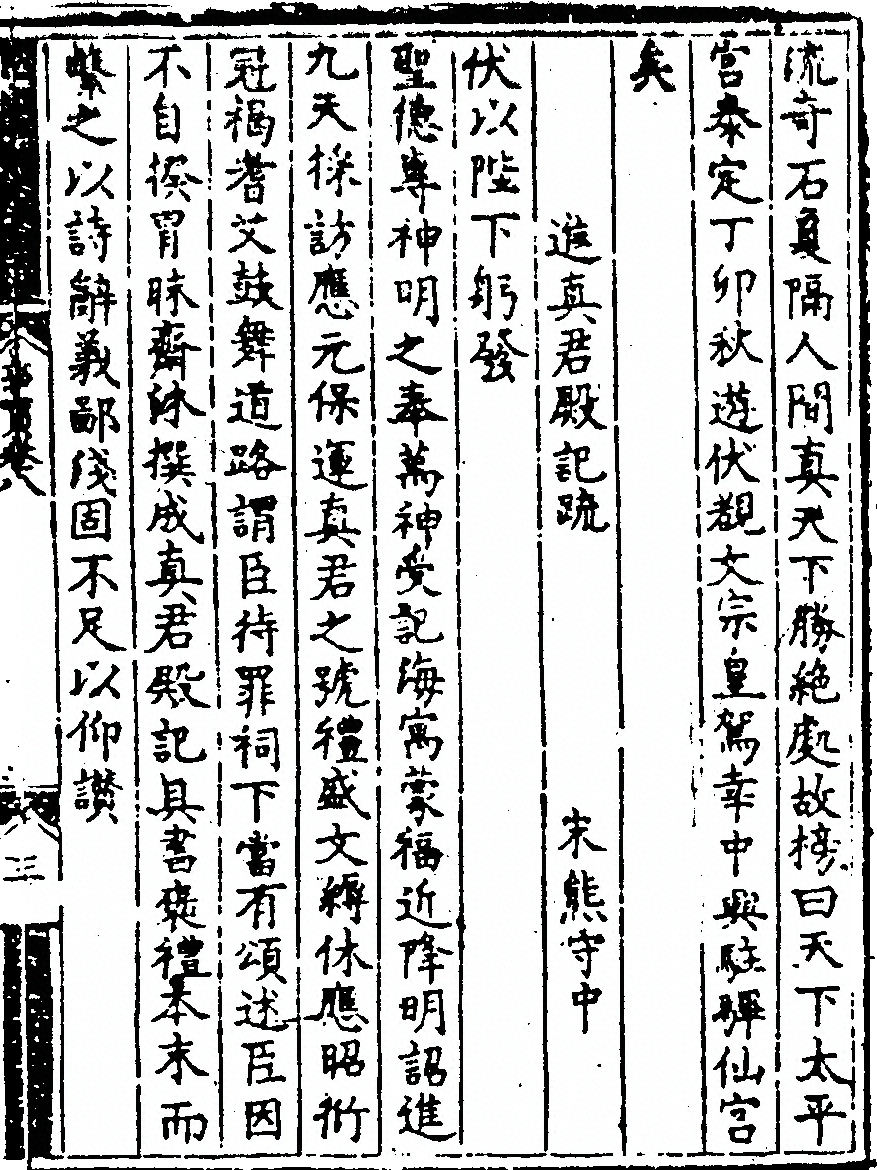 流奇石敻隔人間真天下勝絶處故榜曰天下太平
宮泰定丁卯秋遊伏覩文宗皇駕幸中興駐驆仙宮
矣
進真君殿記疏 宋熊守中
伏以陛下躬發
聖德專神明之奉萬神受記海寓蒙福近降明詔進
九天採訪應元保運真君之號禮盛文縟休應昭衎
冠褐耆艾鼓舞道路謂臣待罪祠下當有頌述臣因
不自揆冒昧齋沐撰成真君殿記具書褒禮本末而
繫之以詩辭義鄙淺固不足以仰讚
卷八
三